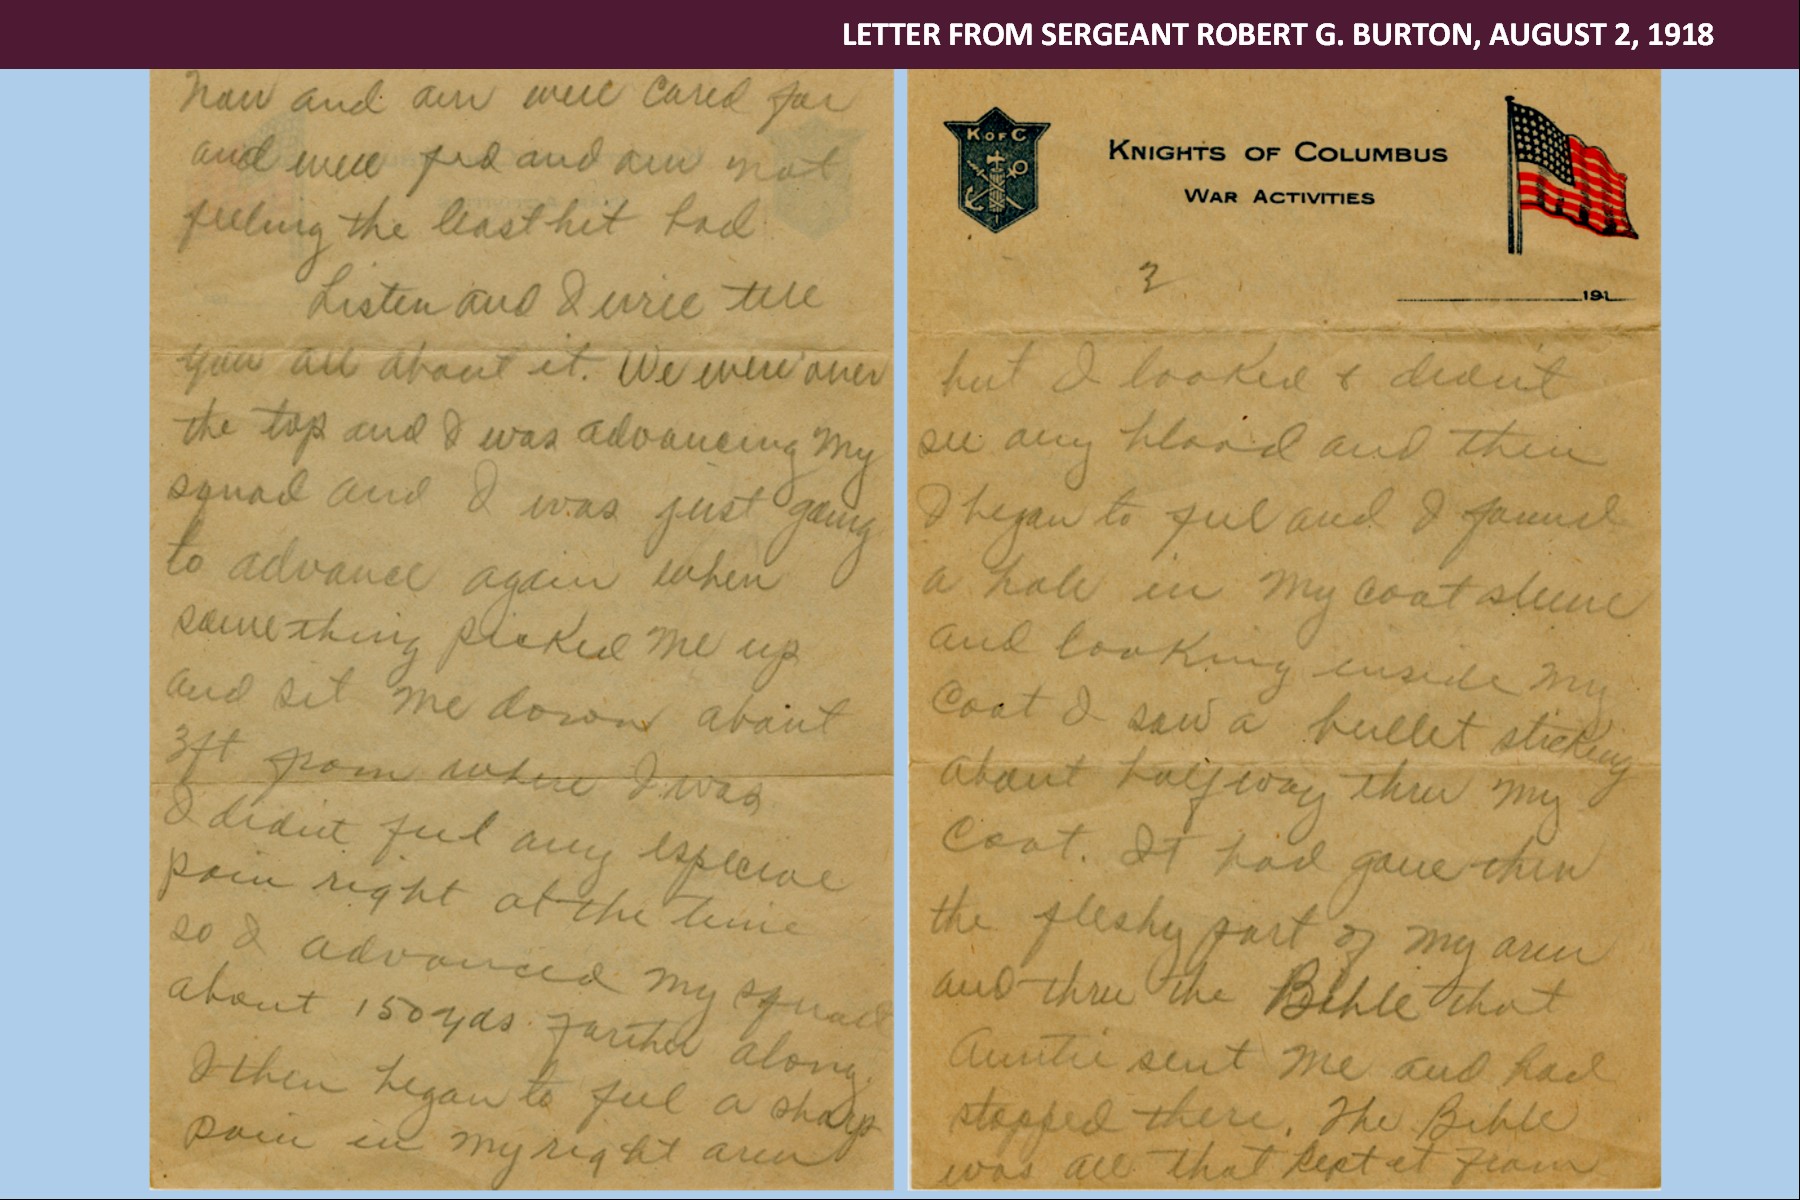 LETTER FROM SERGEANT ROBERT G. BURTON, AUGUST 2, 1918
now and am well cared for
and well fed and am not
feeling the least bit bad
Listen and I will tell
you all about it. We were over
the top and I was advancing my
squad and I was just going
to advance again when
something picked me up
and sit me down about
3ft from where I was
I didnt feel any especial
pain right at the time
so I advanced my squad
about 150 yds farther along.
I then began to feel a sharp
pain in my right arm
K OF C
KNIGHTS OF COLUMBUS
WAR ACTIVITIES
2
191
but I looked & didn't
see any blood and then
I began to feel and I found
a hole in my coat sleeve
and looking inside my
coat I saw a bullet sticking
about halfway thru my
coat. It had gone thru
the fleshy part of my arm
and thru the Bible that
Auntie sent me and had
stopped there. The Bible
was all that kept it from